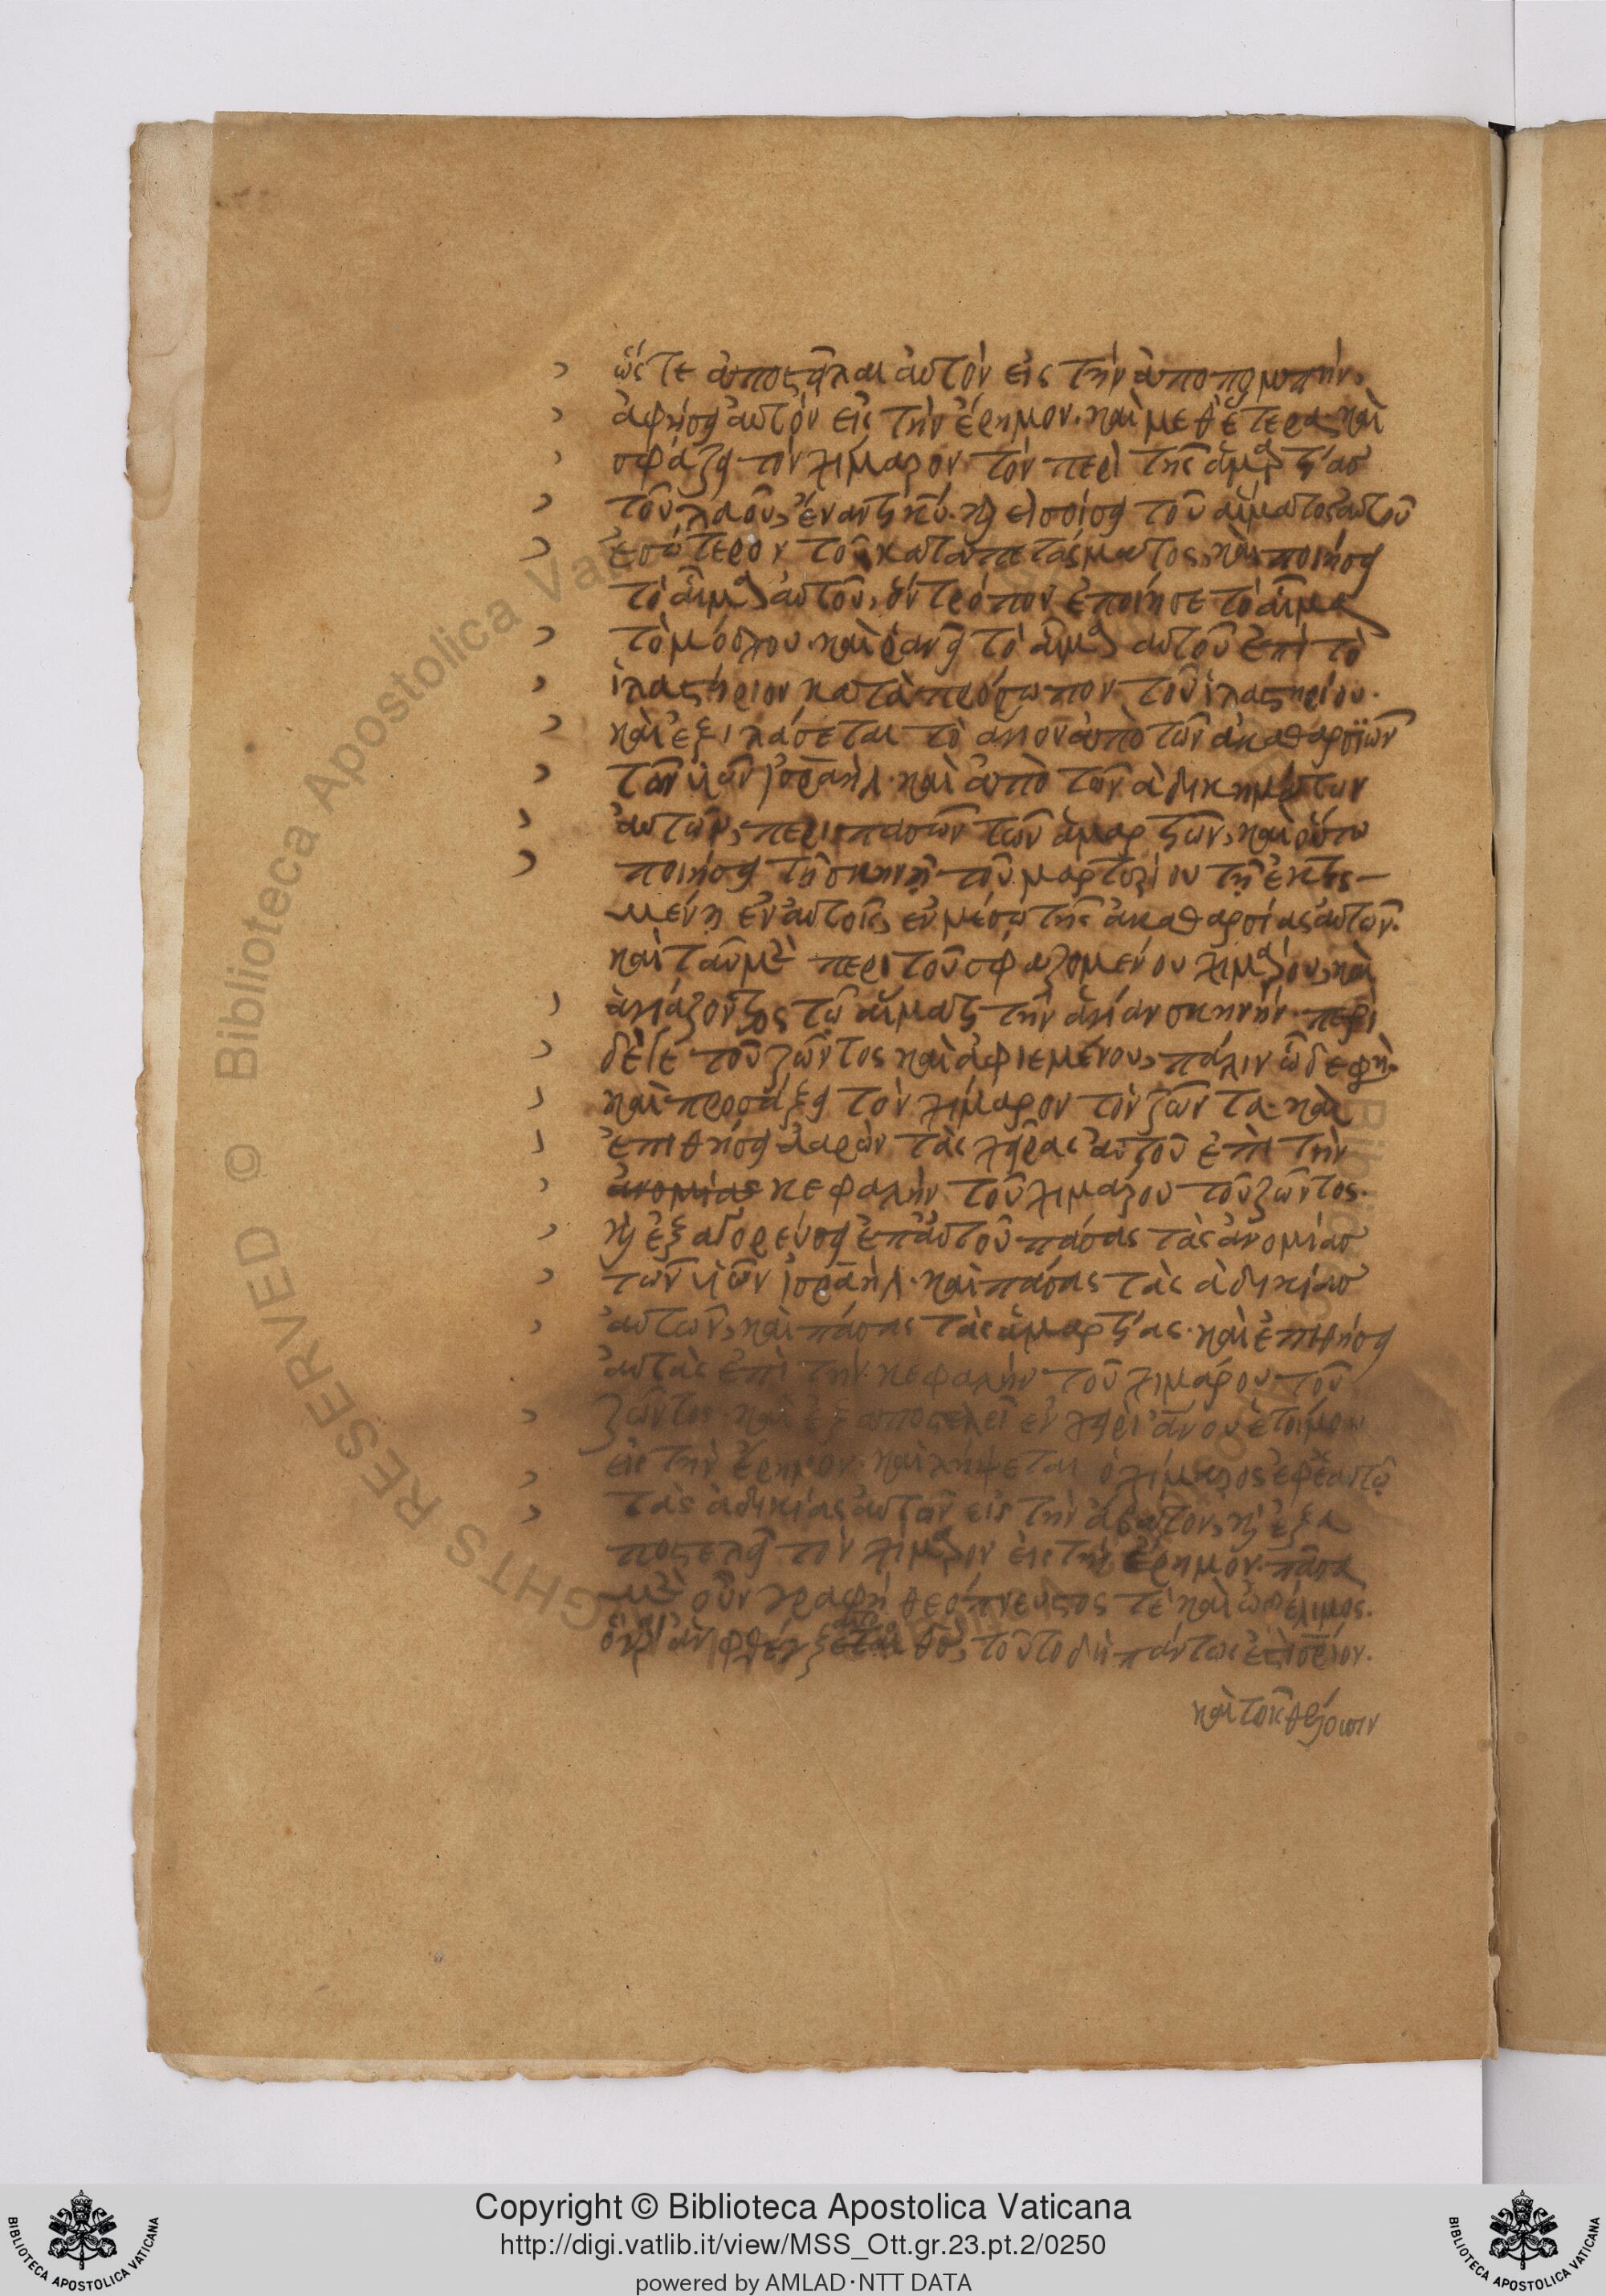 ὥστε ἀποστεῖλαι αὐτὸν εἰς τὴν ἀποπομπήν,
ἀφήσει αὐτὸν εἰς τὴν ἔρημον. καὶ μεθ' ἕτερα. καὶ
σφάξει τὸν χίμαρον τὸν περὶ τῆς ἁμαρτίας
τοῦ λαοῦ, ἔναντι κυ. καὶ εἰσοίσει τοῦ αἵματος αὐτοῦ
ἐσώτερον τοῦ καταπετάσματος, καὶ ποιήσει
τὸ αἷμα αὐτοῦ, ὃν τρόπον ἐποίησε τὸ αἷμα
τὸ μόσχου. καὶ ῥανεῖ τὸ αἷμα αὐτοῦ ἐπὶ τὸ
ἱλαστήριον κατὰ πρόσωπον τοῦ ἱλαστηρίου.
καὶ ἐξιλάσεται τὸ ἅγιον ἀπὸ τῶν ἀκαθαρσιῶν
τῶν υἱῶν ἰσραὴλ. καὶ ἀπὸ τῶν ἀδικημάτων
αὐτῶν, περὶ πασῶν τῶν ἁμαρτιῶν, καὶ οὕτω
ποιήσει τῇ σκηνῇ τοῦ μαρτυρίου τῇ ἐκτισ-
μένῃ ἐν αὐτοῖς, ἐν μέσῳ τῆς ἀκαθαρσίας αὐτῶν.
καὶ ταῦτα μὲν περὶ τοῦ σφαζομένου χιμάρου, καὶ
ἁγιάζοντος τῷ αἵματι τὴν ἁγίαν σκηνήν. περὶ
δέ γε τοῦ ζῶντος καὶ ἀφιεμένου, πάλιν ὧδε φη.
καὶ προσάξει τὸν χίμαρον τὸν ζῶντα. καὶ
ἐπιθήσει ἀαρὼν τὰς χεῖρας αὐτοῦ ἐπὶ τὴν
ἀνομίας κεφαλὴν τοῦ χιμάρου τοῦ ζῶντος.
καὶ ἐξαγορεύσει ἐπ' αὐτοῦ πάσας τὰς ἀνομίας
τῶν υἱῶν ἰσραὴλ. καὶ πάσας τὰς ἀδικίας
αὐτῶν, καὶ πάσας τὰς ἁμαρτίας. καὶ ἐπιθήσει
αὐτὰς ἐπὶ τὴν κεφαλὴν τοῦ χιμάρου τοῦ
ζῶντος. καὶ ἐξαποστελεῖ ἐν χειρὶ ἀνου ἑτοίμου
εἰς τὴν ἔρημον. καὶ λήψεται ὁ χίμαρος ἐφ' ἑαυτῷ
τὰς ἀδικίας αὐτῶν εἰς τὴν ἄβατον, καὶ ἐξα
ποστελεῖ τὸν χίμαρον εἰς τὴν ἔρημον. πᾶσα
μὲν οὖν γραφὴ θεόπνευστος τὲ καὶ ὠφέλιμος.
τοῦτο δὴ πάντως ἐστι σῤιον.
καὶ τοῖς
Copyright © Biblioteca Apostolica Vaticana
http://digi.vatlib.it/view/MSS_Ott.gr.23.pt.2/0250
powered by AMLAD·NTT DATA